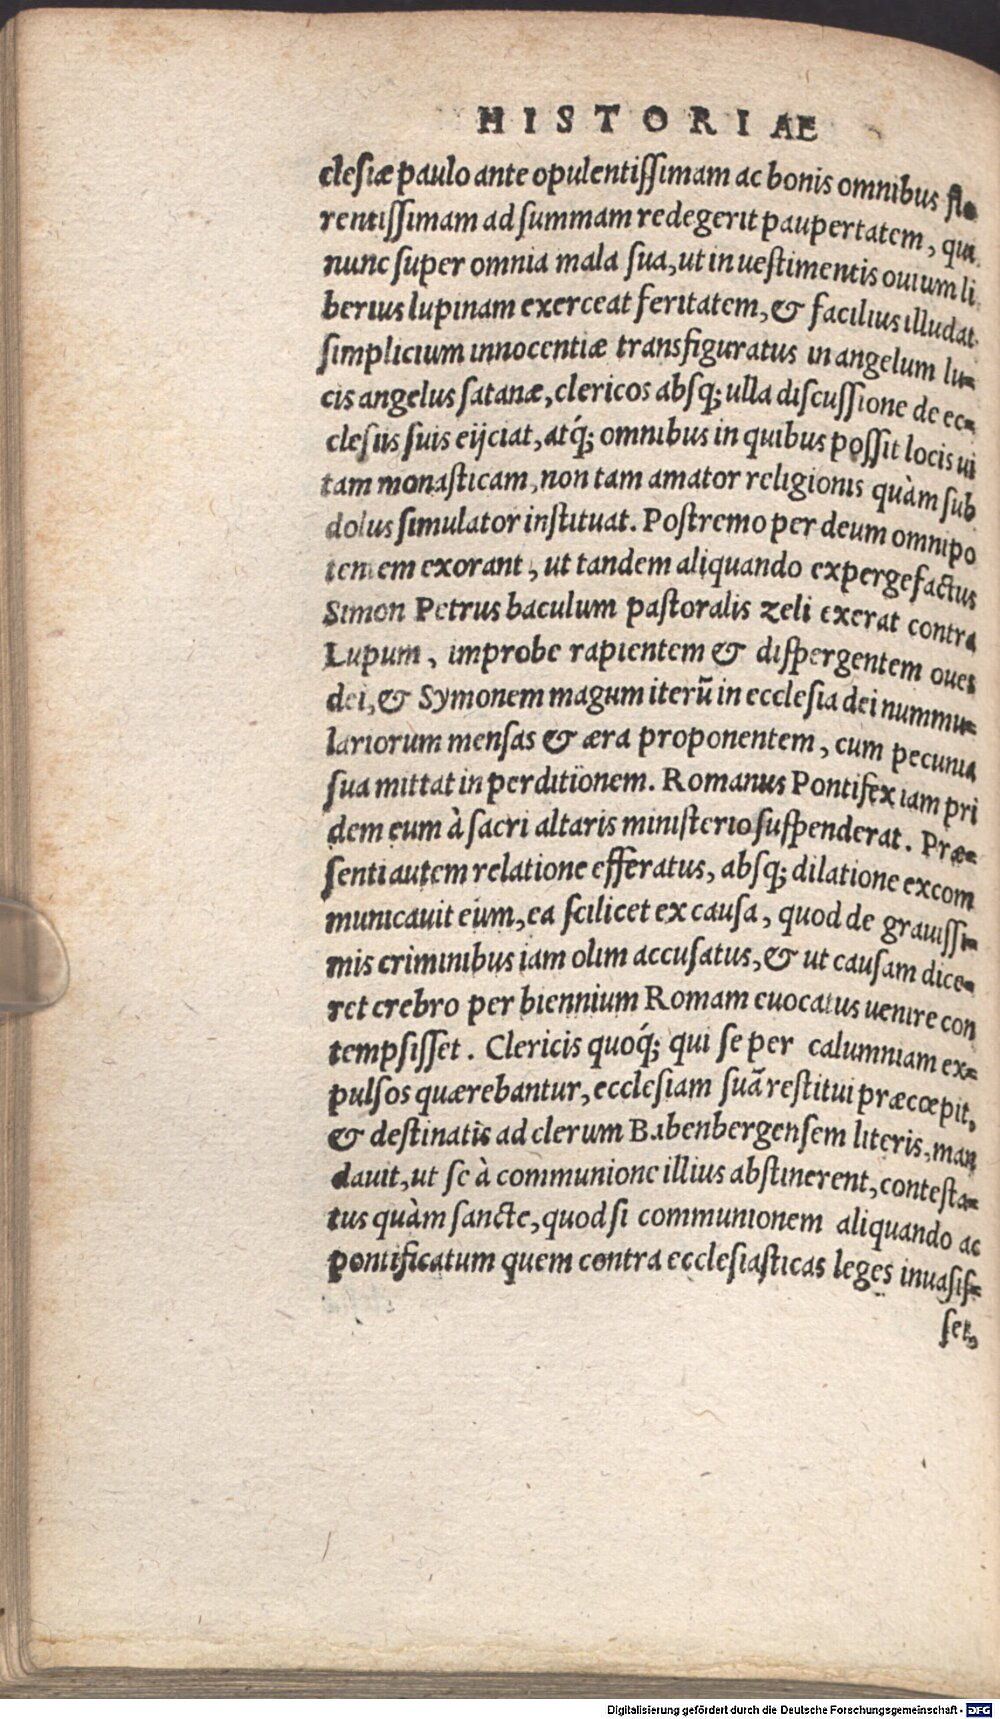 HISTORIAE
clesiæ paulo ante opulentissimam ac bonis omnibus flo
rentissimam ad summam redegerit paupertatem, qui
nunc super omnia mala sua, ut in uestimentis ouium li
berius lupinam exerceat feritatem, & facilius illudat
simplicium innocentiæ transfiguratus in angelum lu=
cis angelus satanæ, clericos absq; ulla discussione de ec=
clesiis suis eijciat, atq́; omnibus in quibus possit locis ui
tam monasticam, non tam amator religionis quàm sub
dolus simulator instituat. Postremo per deum omnipo
tentem exorant, ut tandem aliquando expergefactus
Simon Petrus baculum pastoralis zeli exerat contra
Lupum, improbe rapientem & dispergentem oues
dei, & Symonem magum iterũ in ecclesia dei nummu=
lariorum mensas & æra proponentem, cum pecunia
sua mittat in perditionem. Romanus Pontifex iam pri
dem eum à sacri altaris ministerio suspenderat. Præ=
senti autem relatione efferatus, absq; dilatione excom
municauit eum, ea scilicet ex causa, quod de grauissi=
mis criminibus iam olim accusatus, & ut causam dice=
ret crebro per biennium Romam euocatus uenire con
tempsisset. Clericis quoq́; qui se per calumniam ex=
pulsos quærebantur, ecclesiam suã restitui præcœpit,
& destinatis ad clerum Babenbergensem literis, man
dauit, ut se à communione illius abstinerent, contesta=
tus quàm sancte, quod si communionem aliquando ac
pontificatum quem contra ecclesiasticas leges inuasis=
set,
Digitalisierung gefördert durch die Deutsche Forschungsgemeinschaft - DFG